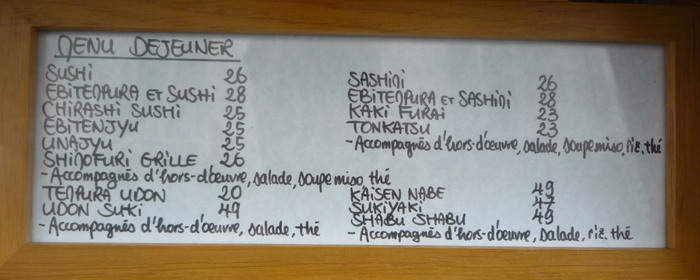 MENU DEJEUNER
SUSHI 26
EBITEMPURA ET SUSHI 28
CHIRASHI SUSHI 25
EBITENJYU 25
UNAJYU 25
SHIMOFURI GRILLE 26
- Accompagnés d'hors-d'œuvre, salade, soupe miso, thé
TEMPURA UDON 20
UDON SUKI 49
- Accompagnés d'hors-d'œuvre, salade, thé
SASHIMI 26
EBITEMPURA ET SASHIMI 28
KAKI FURAI 23
TONKATSU 23
- Accompagnés d'hors-d'œuvre, salade, soupe miso, riz, thé
KAISEN NABE 49
SUKIYAKI 47
SHABU SHABU 48
- Accompagnés d'hors-d'œuvre, salade, riz, thé